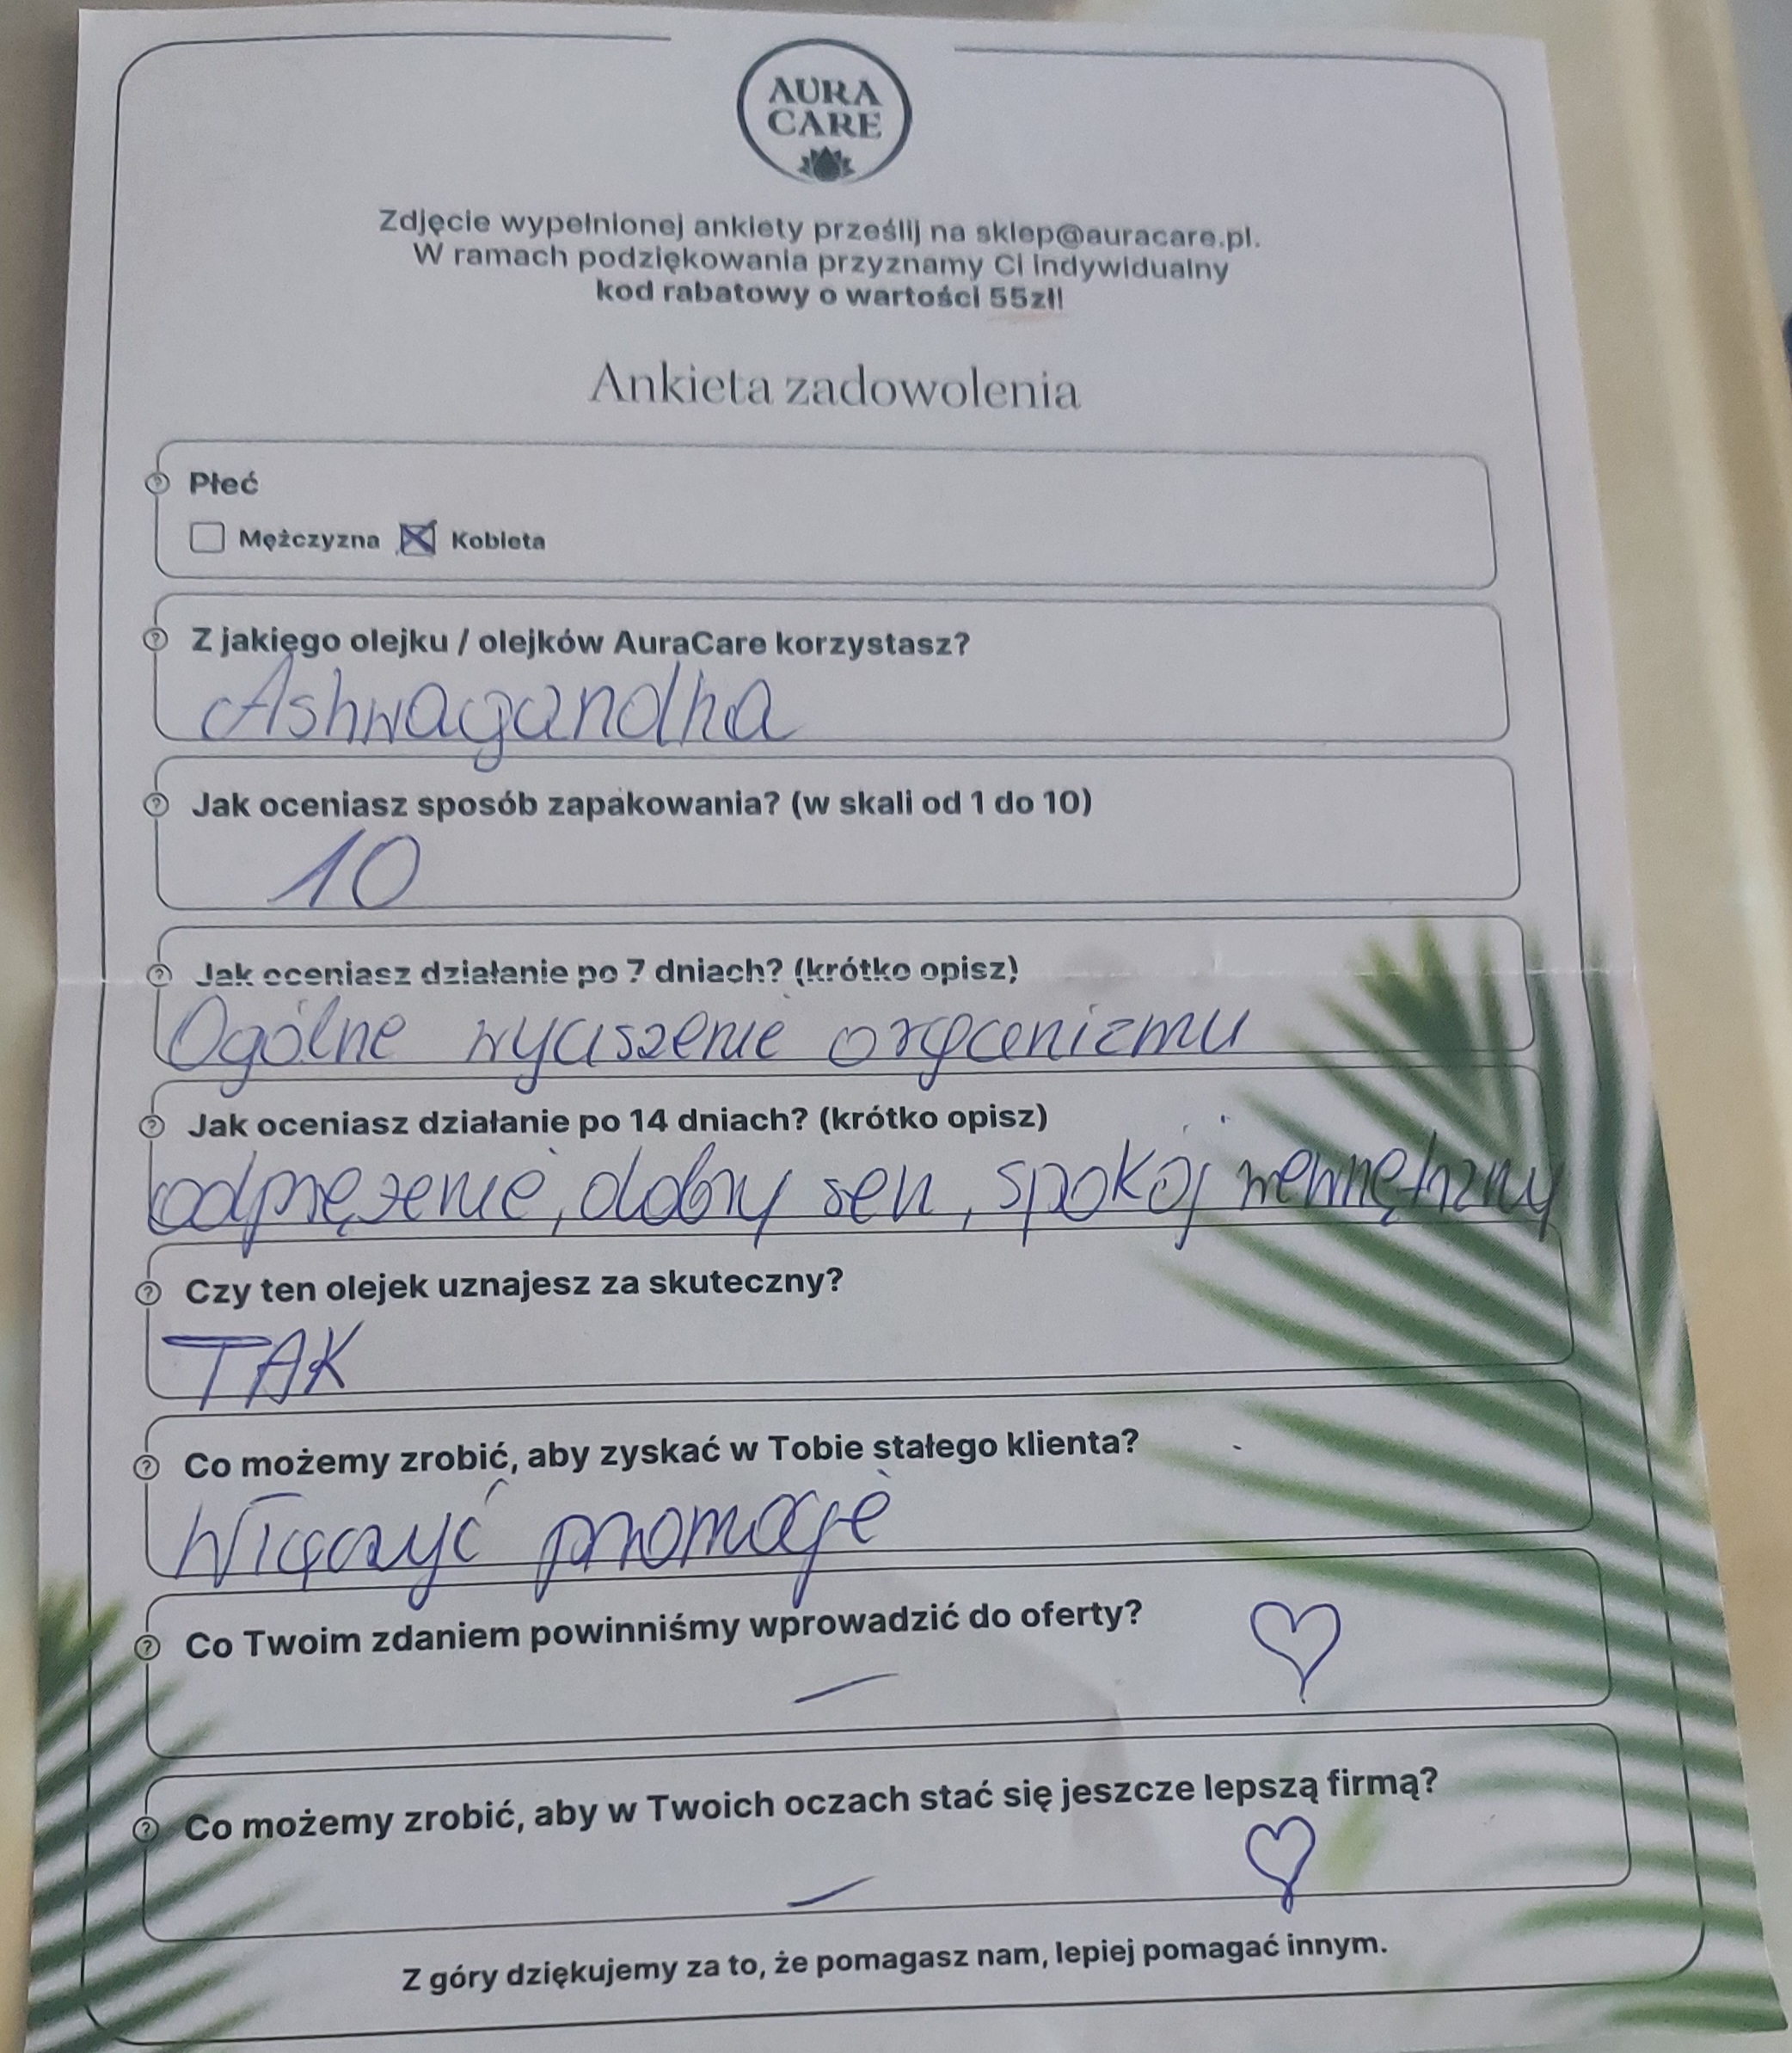 AURA
CARE
Zdjęcie wypełnionej ankiety prześlij na sklep@auracare.pl.
W ramach podziękowania przyznamy Ci indywidualny
kod rabatowy o wartości 55zł!
Ankieta zadowolenia
Płeć
Mężczyzna Kobieta
Z jakiego olejku / olejków AuraCare korzystasz?
Ashwagandha
Jak oceniasz sposób zapakowania? (w skali od 1 do 10)
10
Jak oceniasz działanie po 7 dniach? (krótko opisz)
Ogólne wyciszenie organizmu
Jak oceniasz działanie po 14 dniach? (krótko opisz)
odprężenie, dobry sen, spokój wewnętrzny
Czy ten olejek uznajesz za skuteczny?
TAK
Co możemy zrobić, aby zyskać w Tobie stałego klienta?
Włączyć promocje
Co Twoim zdaniem powinniśmy wprowadzić do oferty?
—
Co możemy zrobić, aby w Twoich oczach stać się jeszcze lepszą firmą?
—
Z góry dziękujemy za to, że pomagasz nam, lepiej pomagać innym.